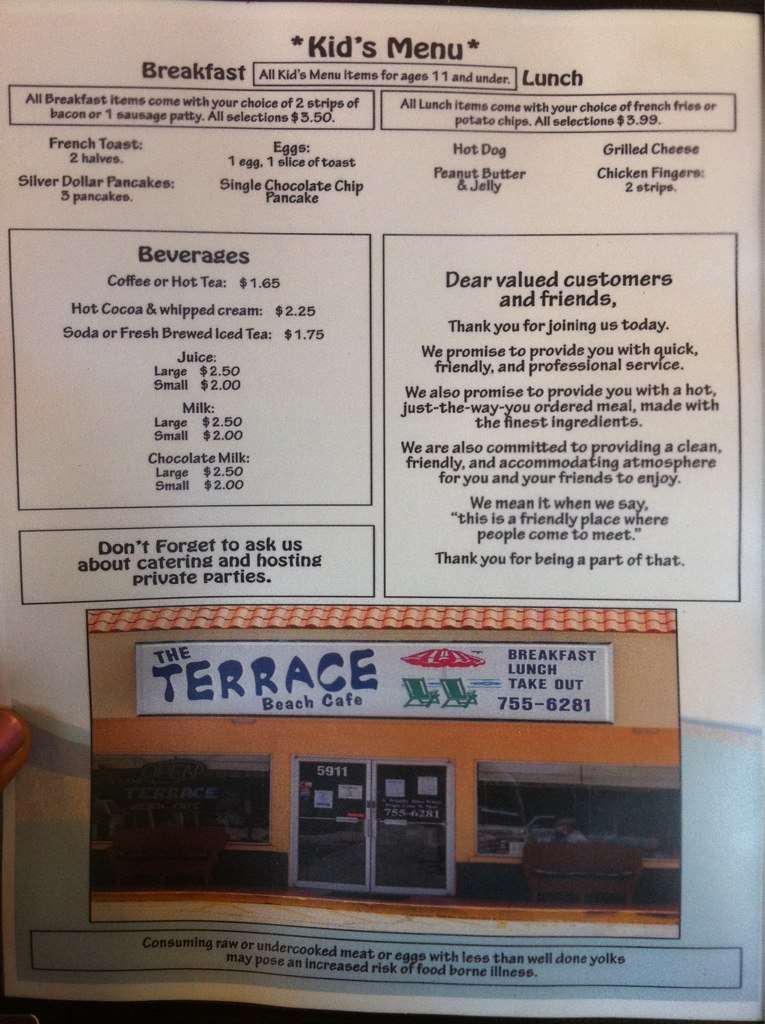 *Kid's Menu*
Breakfast
All Kid's Menu items for ages 11 and under.
Lunch
All Breakfast items come with your choice of 2 strips of
bacon or 1 sausage patty. All selections $3.50.
French Toast:
2 halves.
Eggs:
1 egg, 1 slice of toast
Silver Dollar Pancakes:
3 pancakes.
Single Chocolate Chip
Pancake
All Lunch items come with your choice of french fries or
potato chips. All selections $3.99.
Hot Dog
Grilled Cheese
Peanut Butter
& Jelly
Chicken Fingers:
2 strips.
Beverages
Coffee or Hot Tea: $1.65
Hot Cocoa & whipped cream: $2.25
Soda or Fresh Brewed Iced Tea: $1.75
Juice:
Large $2.50
Small $2.00
Milk:
Large $2.50
Small $2.00
Chocolate Milk:
Large $2.50
Small $2.00
Don't Forget to ask us
about catering and hosting
private parties.
Dear valued customers
and friends,
Thank you for joining us today.
We promise to provide you with quick,
friendly, and professional service.
We also promise to provide you with a hot,
just-the-way-you ordered meal, made with
the finest ingredients.
We are also committed to providing a clean,
friendly, and accommodating atmosphere
for you and your friends to enjoy.
We mean it when we say,
"this is a friendly place where
people come to meet."
Thank you for being a part of that.
THE
TERRACE
Beach Cafe
BREAKFAST
LUNCH
TAKE OUT
755-6281
5911
TERRACE
755-6281
Consuming raw or undercooked meat or eggs with less than well done yolks
may pose an increased risk of food borne illness.